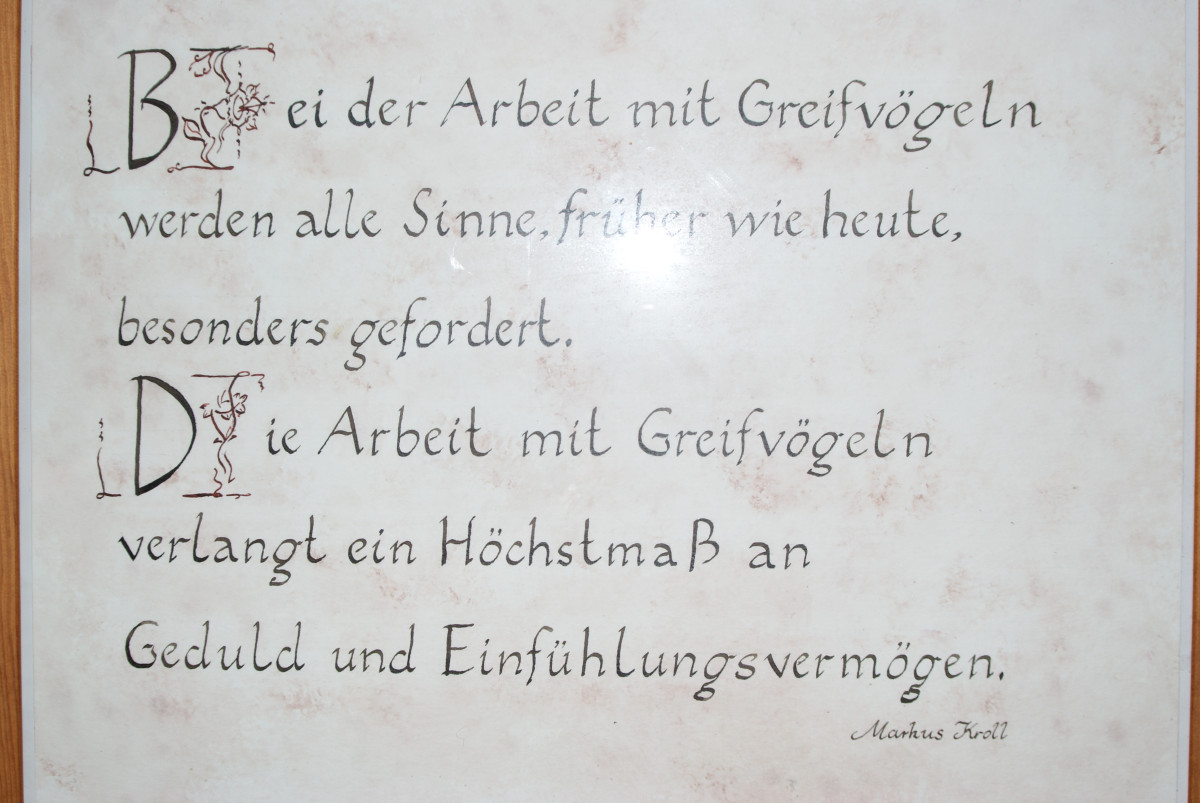 Bei der Arbeit mit Greifvögeln
werden alle Sinne, früher wie heute,
besonders gefordert.
Die Arbeit mit Greifvögeln
verlangt ein Höchstmaß an
Geduld und Einfühlungsvermögen.
Markus Kroll